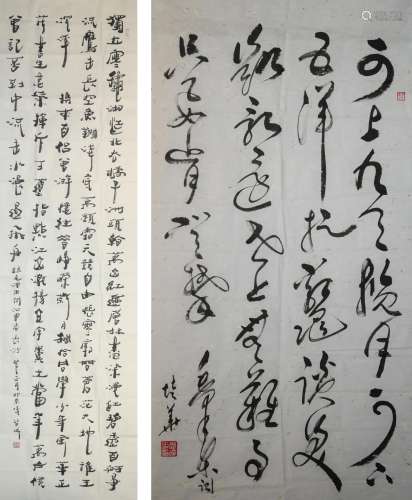 可上九天揽月可下
五洋捉鳖谈笑
凯歌还世上无难事
只要肯登攀
培华
獨立寒秋湘江北去橘子洲頭看萬山紅遍層林盡染漫江碧透百舸爭
流鷹擊長空魚翔淺底萬類霜天競自由悵寥廓問蒼茫大地誰主
沉浮携來百侶曾遊憶往昔崢嶸歲月稠恰同學少年風華正
茂書生意氣揮斥方遒指點江山激揚文字糞土當年萬戶侯
曾記否到中流擊水浪遏飛舟